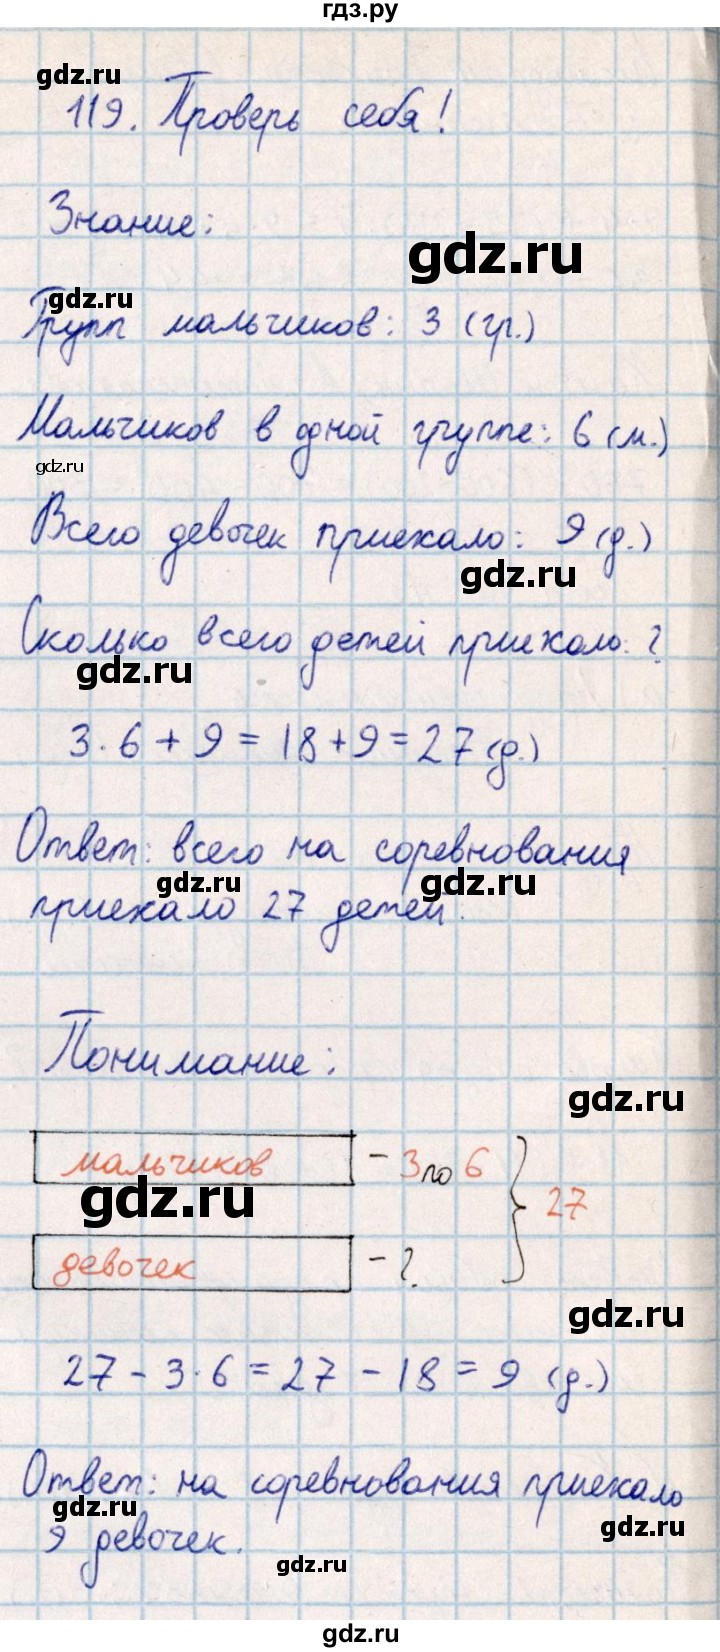 гдз.ру
gdz.ru
119. Проверь себя!
Знание:
gdz.ru
gdz.ru
Групп мальчиков: 3 (гр.)
Мальчиков в одной группе: 6 (м.)
gdz.ru
Всего девочек приехало: 9 (д.)
gdz.ru
Сколько всего детей приехало: ?
gdz.ru
3·6+9=18+9=27 (д.)
Ответ: всего на соревнования
gdz.ru gdz.ru
приехало 27 детей.
Понимание:
gdz.ru
мальчиков - 3 по 6
gdz.ru
27
девочек - ?
gdz.ru
27-3·6=27-18=9 (д.)
Ответ: на соревнования приехало
gdz.ru
gdz.ru
9 девочек.
gdz.ru
gdz.ru